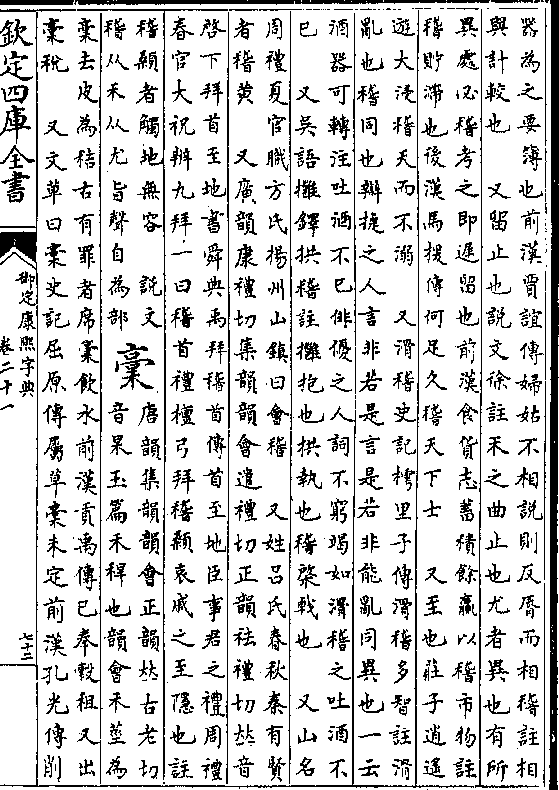 器為之要簿也前漢賈誼傳婦姑不相說則反脣而相稽註相
與計較也 又留止也說文徐註禾之曲止也尤者異也有所
異處必稽考之即遲留也前漢食貨志蓄積餘贏以稽市物註
稽貯滯也後漢馬援傳何足久稽天下士 又至也莊子逍遙
遊大浸稽天而不溺 又滑稽史記樗里子傳滑稽多智註滑
亂也稽同也辨捷之人言非若是言是若非能亂同異也一云
酒器可轉注吐酒不已俳優之人詞不窮竭如滑稽之吐酒不
已 又吳語擁鐸拱稽註擁抱也拱執也稽棨戟也 又山名
周禮夏官職方氏揚州山鎮曰會稽 又姓呂氏春秋秦有賢
者稽黃 又廣韻康禮切集韻韻會遣禮切正韻祛禮切𠀤音
啓下拜首至地書舜典禹拜稽首傳首至地臣事君之禮周禮
春官大祝辨九拜一曰稽首禮檀弓拜稽顙哀戚之至隱也註
稽顙者觸地無容 說文
稽从禾从尤旨聲自為部
稾
唐韻集韻韻會正韻𠀤古老切
音杲玉篇禾稈也韻會禾莖為
稾去皮為秸古有罪者席稾飲水前漢貢禹傳已奉穀租又出
稾稅 又文草曰稾史記屈原傳屬草稾未定前漢孔光傳削
欽定四庫全書
御定康熙字典
卷二十一
七十二